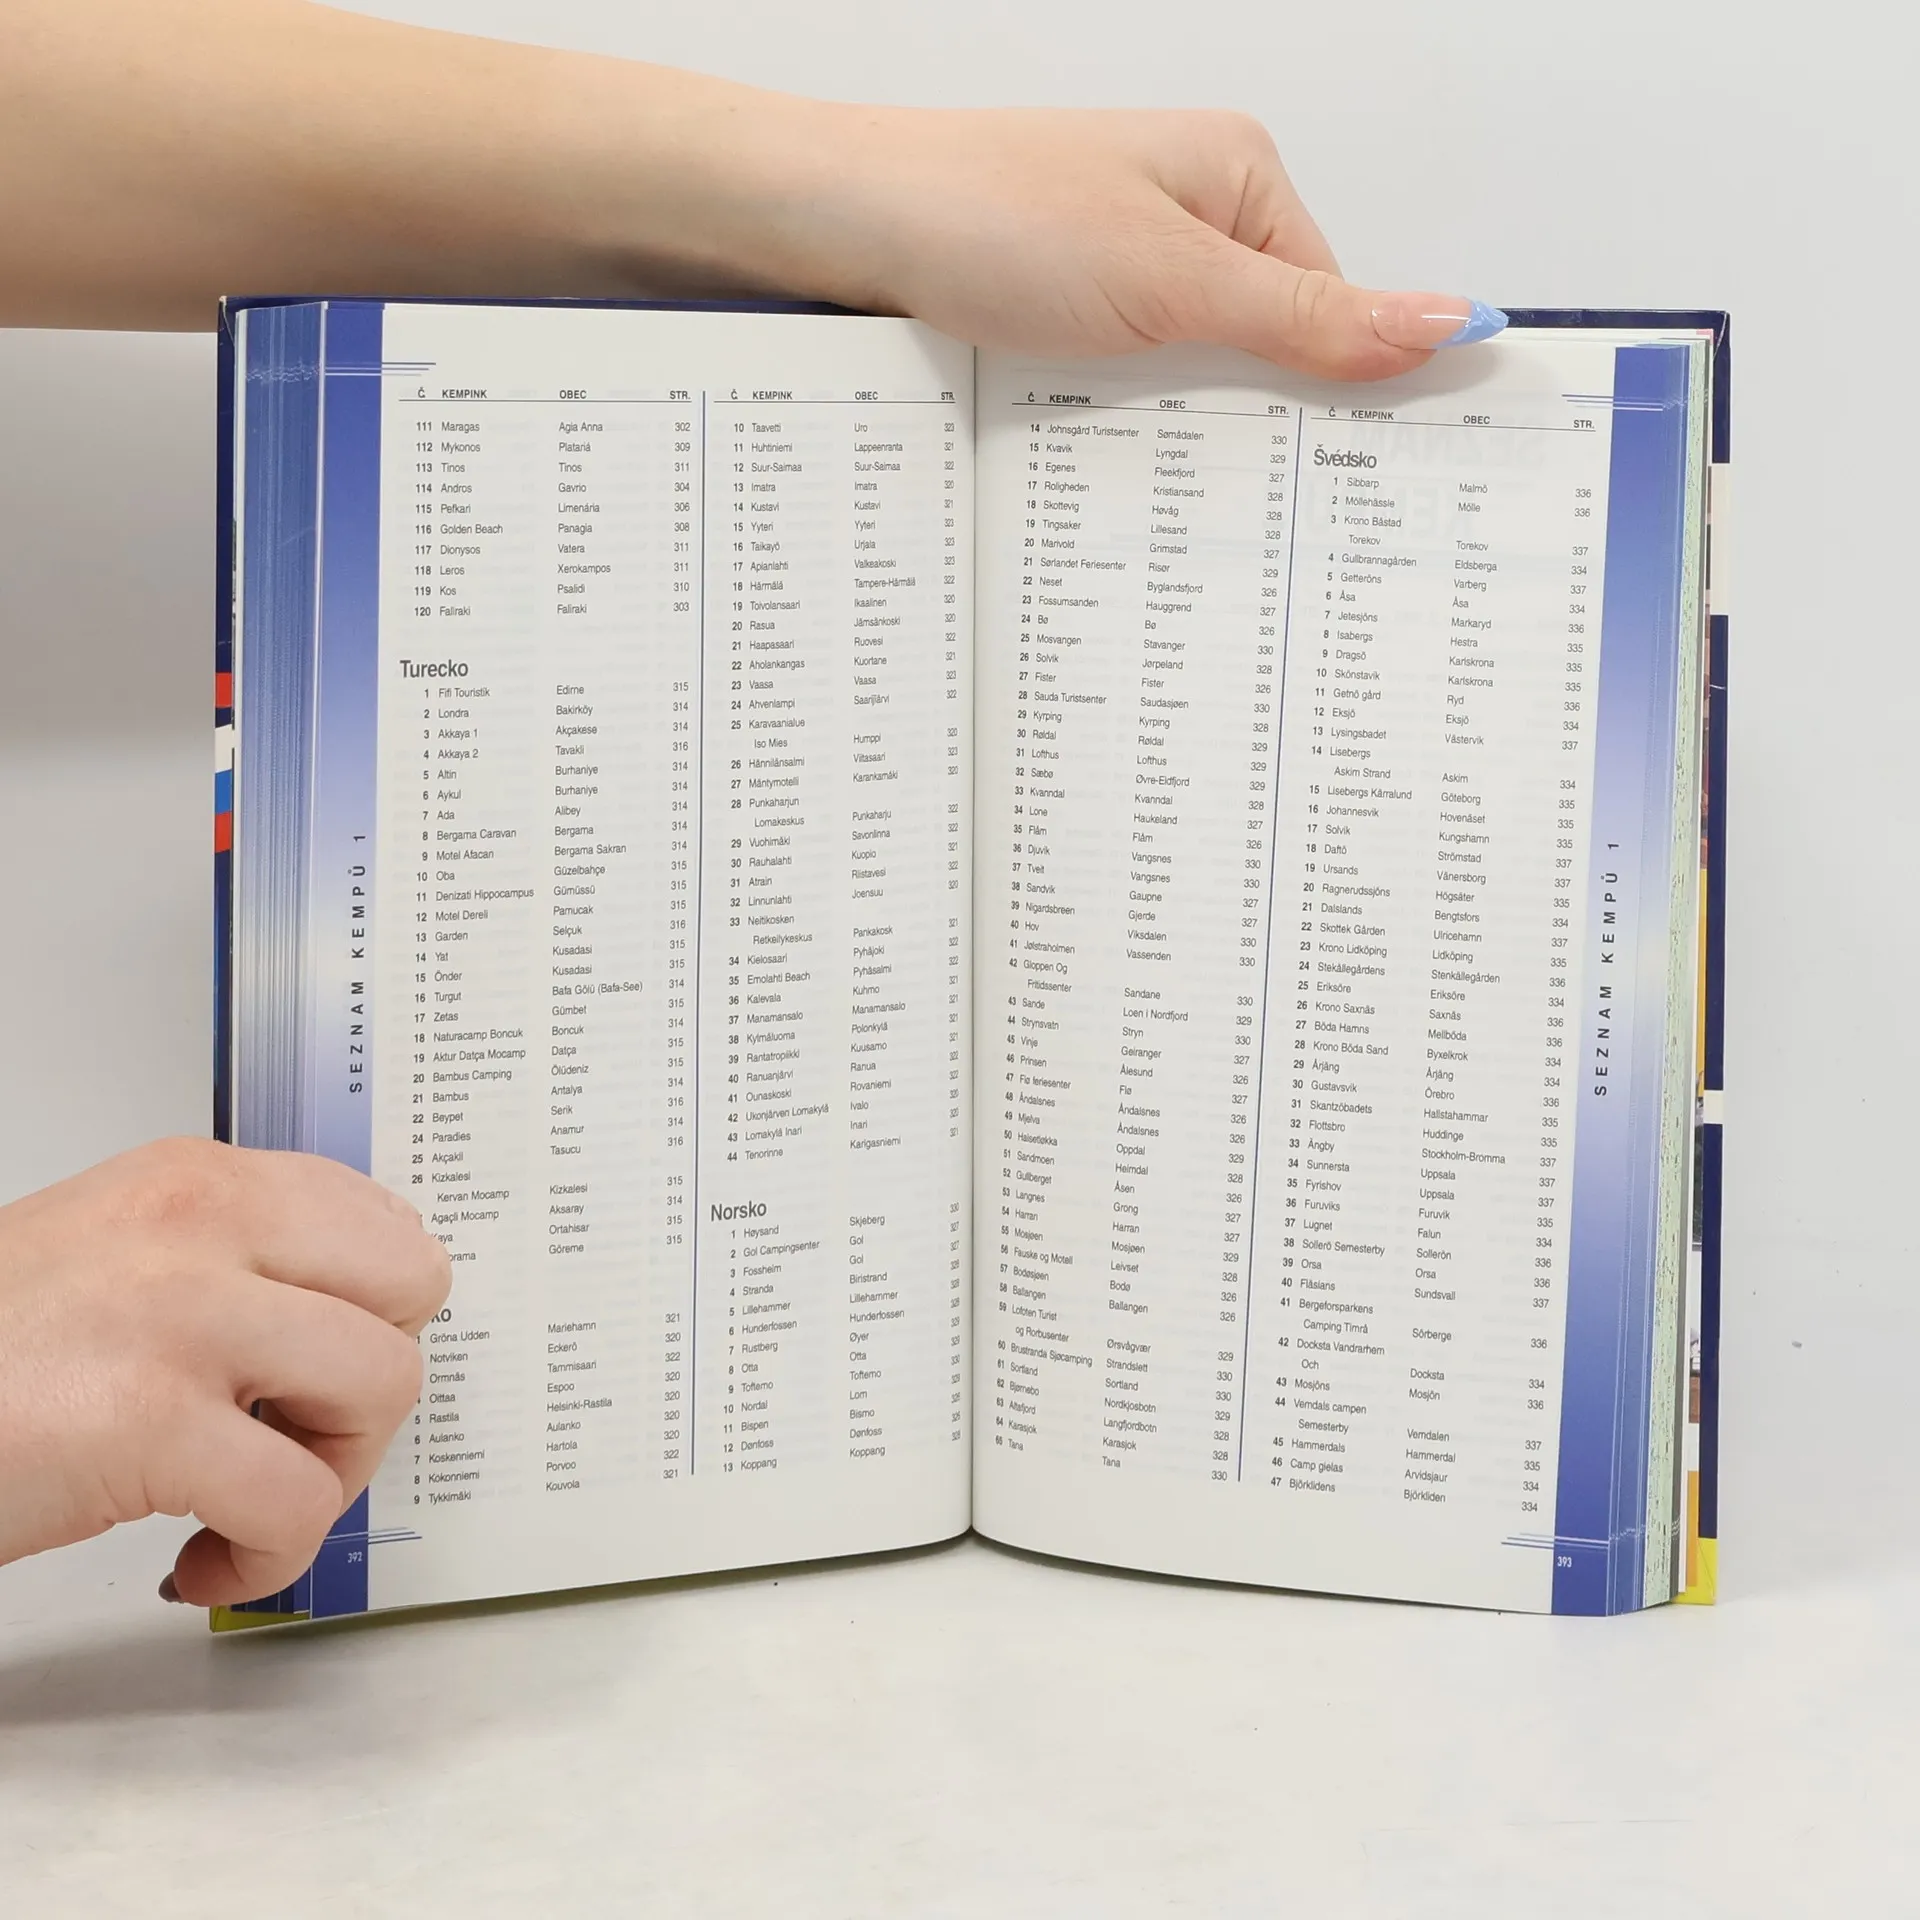 Č. KEMPINK OBEC STR.
111 Maragas Agia Anna 302
112 Mykonos Platariá 309
113 Tinos Tinos 311
114 Andros Gavrio 304
115 Pefkari Limenária 306
116 Golden Beach Panagia 308
117 Dionysos Vatera 311
118 Leros Xerokampos 311
119 Kos Psalidi 310
120 Faliraki Faliraki 303
Turecko
1 Fifi Touristik Edirne 315
2 Londra Bakirköy 314
3 Akkaya 1 Akçakese 314
4 Akkaya 2 Tavakli 316
5 Altin Burhaniye 314
6 Aykul Burhaniye 314
7 Ada Alibey 314
8 Bergama Caravan Bergama 314
9 Motel Afacan Bergama Sakran 314
10 Oba Güzelbahçe 315
11 Denizati Hippocampus Gümüssü 315
12 Motel Dereli Pamucak 315
13 Garden Selçuk 316
14 Yat Kusadasi 315
15 Önder Kusadasi 315
16 Turgut Bafa Gölü (Bafa-See) 314
17 Zetas Gümbet 315
18 Naturacamp Boncuk Boncuk 314
19 Aktur Datça Mocamp Datça 315
20 Bambus Camping Ölüdeniz 315
21 Bambus Antalya 314
22 Beypet Serik 316
24 Paradies Anamur 314
25 Akçakil Tasucu 316
26 Kizkalesi
Kervan Mocamp Kizkalesi 315
Agaçli Mocamp Aksaray 314
Kaya Ortahisar 315
orama Göreme 315
ko
1 Gröna Udden Mariehamn 321
Notviken Eckerö 320
Ormnäs Tammisaari 322
Oittaa Espoo 320
5 Rastila Helsinki-Rastila 320
6 Aulanko Aulanko 320
7 Koskenniemi Hartola 320
8 Kokonniemi Porvoo 322
9 Tykkimäki Kouvola 321
Č. KEMPINK OBEC STR.
10 Taavetti Uro 323
11 Huhtiniemi Lappeenranta 321
12 Suur-Saimaa Suur-Saimaa 322
13 Imatra Imatra 320
14 Kustavi Kustavi 321
15 Yyteri Yyteri 323
16 Taikayö Urjala 323
17 Apianlahti Valkeakoski 323
18 Härmälä Tampere-Härmälä 322
19 Toivolansaari Ikaalinen 320
20 Rasua Jämsänkoski 320
21 Haapasaari Ruovesi 322
22 Aholankangas Kuortane 321
23 Vaasa Vaasa 323
24 Ahvenlampi Saarijärvi 322
25 Karavaanialue
Iso Mies Humppi 320
26 Hännilänsalmi Viitasaari 323
27 Mäntymotelli Karankamäki 320
28 Punkaharjun
Lomakeskus Punkaharju 322
29 Vuohimäki Savonlinna 322
30 Rauhalahti Kuopio 321
31 Atrain Riistavesi 322
32 Linnunlahti Joensuu 320
33 Neitikosken
Retkeilykeskus Pankakosk 321
34 Kielosaari Pyhäjoki 322
35 Emolahti Beach Pyhäsalmi 322
36 Kalevala Kuhmo 321
37 Manamansalo Manamansalo 321
38 Kylmäluoma Polonkylä 321
39 Rantatropiikki Kuusamo 321
40 Ranuanjärvi Ranua 322
41 Ounaskoski Rovaniemi 322
42 Ukonjärven Lomakylä Ivalo 320
43 Lomakylä Inari Inari 320
44 Tenorinne Karigasniemi 321
Norsko
1 Høysand Skjeberg 330
2 Gol Campingsenter Gol 327
3 Fossheim Gol 327
4 Stranda Biristrand 326
5 Lillehammer Lillehammer 328
6 Hunderfossen Hunderfossen 328
7 Rustberg Øyer 329
8 Otta Otta 329
9 Toftemo Toftemo 330
10 Nordal Lom 328
11 Bispen Bismo 326
12 Dønfoss Dønfoss 326
13 Koppang Koppang 328
SEZNAM KEMPŮ 1
392
Č KEMPINK OBEC STR.
14 Johnsgård Turistsenter Sømådalen 330
15 Kvavik Lyngdal 329
16 Egenes Fleekfjord 327
17 Roligheden Kristiansand 328
18 Skottevig Høvåg 328
19 Tingsaker Lillesand 328
20 Marivold Grimstad 327
21 Sørlandet Feriesenter Risør 329
22 Neset Byglandsfjord 326
23 Fossumsanden Hauggrend 327
24 Bø Bø 326
25 Mosvangen Stavanger 330
26 Solvik Jørpeland 328
27 Fister Fister 326
28 Sauda Turistsenter Saudasjøen 330
29 Kyrping Kyrping 328
30 Røldal Røldal 329
31 Lofthus Lofthus 329
32 Sæbø Øvre-Eidfjord 329
33 Kvanndal Kvanndal 328
34 Lone Haukeland 327
35 Flåm Flåm 326
36 Djuvik Vangsnes 330
37 Tveit Vangsnes 330
38 Sandvik Gaupne 327
39 Nigardsbreen Gjerde 327
40 Hov Viksdalen 330
41 Jølstraholmen Vassenden 330
42 Gloppen Og
Fritidssenter Sandane 330
43 Sande Loen i Nordfjord 329
44 Strynsvatn Stryn 330
45 Vinje Geiranger 327
46 Prinsen Ålesund 326
47 Flø feriesenter Flø 327
48 Åndalsnes Åndalsnes 326
49 Mjelva Åndalsnes 326
50 Halsetløkka Oppdal 329
51 Sandmoen Heimdal 328
52 Gullberget Åsen 326
53 Langnes Grong 327
54 Harran Harran 327
55 Mosjøen Mosjøen 329
56 Fauske og Motell Leivset 328
57 Bodøsjøen Bodø 326
58 Ballangen Ballangen 326
59 Lofoten Turist
og Rorbusenter Ørsvågvær 329
60 Brustranda Sjøcamping Strandslett 330
61 Sortland Sortland 330
62 Bjørnebo Nordkjosbotn 329
63 Altafjord Langfjordbotn 328
64 Karasjok Karasjok 328
65 Tana Tana 330
Č KEMPINK OBEC STR.
Švédsko
1 Sibbarp Malmö 336
2 Möllehässle Mölle 336
3 Krono Båstad
Torekov Torekov 337
4 Gullbrannagården Eldsberga 334
5 Getteröns Varberg 337
6 Åsa Åsa 334
7 Jetesjöns Markaryd 336
8 Isabergs Hestra 335
9 Dragsö Karlskrona 335
10 Skönstavik Karlskrona 335
11 Getnö gård Ryd 336
12 Eksjö Eksjö 334
13 Lysingsbadet Västervik 337
14 Lisebergs
Askim Strand Askim 334
15 Lisebergs Kärralund Göteborg 335
16 Johannesvik Hovenäset 335
17 Solvik Kungshamn 335
18 Daftö Strömstad 337
19 Ursands Vänersborg 337
20 Ragnerudssjöns Högsäter 335
21 Dalslands Bengtsfors 334
22 Skottek Gården Ulricehamn 337
23 Krono Lidköping Lidköping 335
24 Stekällegårdens Stenkällegården 336
25 Eriksöre Eriksöre 334
26 Krono Saxnäs Saxnäs 336
27 Böda Hamns Mellböda 336
28 Krono Böda Sand Byxelkrok 334
29 Årjäng Årjäng 334
30 Gustavsvik Örebro 336
31 Skantzöbadets Hallstahammar 335
32 Flottsbro Huddinge 335
33 Ängby Stockholm-Bromma 337
34 Sunnersta Uppsala 337
35 Fyrishov Uppsala 337
36 Furuviks Furuvik 335
37 Lugnet Falun 334
38 Sollerö Semesterby Sollerön 336
39 Orsa Orsa 336
40 Fläsians Sundsvall 337
41 Bergeforsparkens
Camping Timrå Sörberge 336
42 Docksta Vandrarhem
Och Docksta 334
43 Mosjöns Mosjön 336
44 Vemdals campen
Semesterby Vemdalen 337
45 Hammerdals Hammerdal 335
46 Camp gielas Arvidsjaur 334
47 Björklidens Björkliden 334
SEZNAM KEMPŮ 1
393